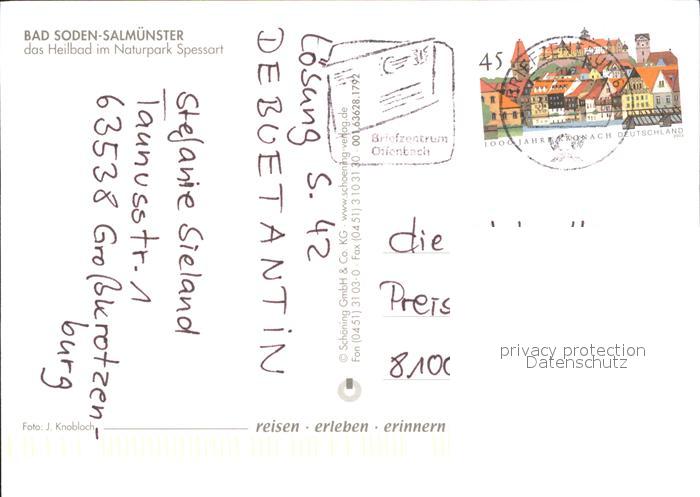 BAD SODEN-SALMÜNSTER
das Heilbad im Naturpark Spessart
Stefanie Sieland
Taunusstr. 1
63538 Großkrotzen-
burg
Lösung S. 42
DEBUETANTIN
Briefzentrum
Offenbach
© Schöning GmbH & Co. KG · www.schoening-verlag.de · 001.63628.1792
Fon (0451) 31 03-0 · Fax (0451) 310 31 30
45
1000 JAHRE KRONACH DEUTSCHLAND
die
Preis
8100
privacy protection
Datenschutz
Foto: J. Knobloch
reisen · erleben · erinnern